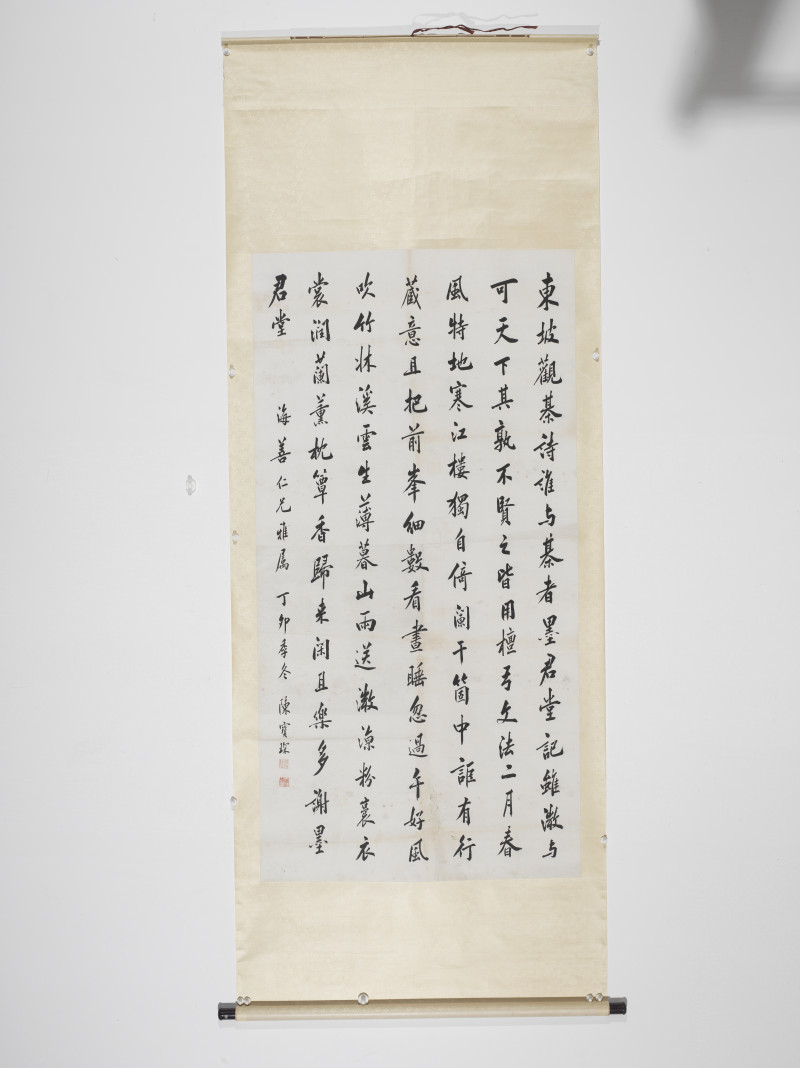 東坡觀棊詩誰与棊者墨君堂記雖微与
可天下其孰不賢之皆用檀弓文法二月春
風特地寒江樓獨自倚闌干箇中誰有行
藏意且把前峯細數看晝睡忽過午好風
吹竹牀溪雲生薄暮山雨送微涼粉裛衣
裳润蘭薰枕簟香歸来闲且樂多謝墨
君堂
海善仁兄雅属 丁卯季冬 陳寶琛